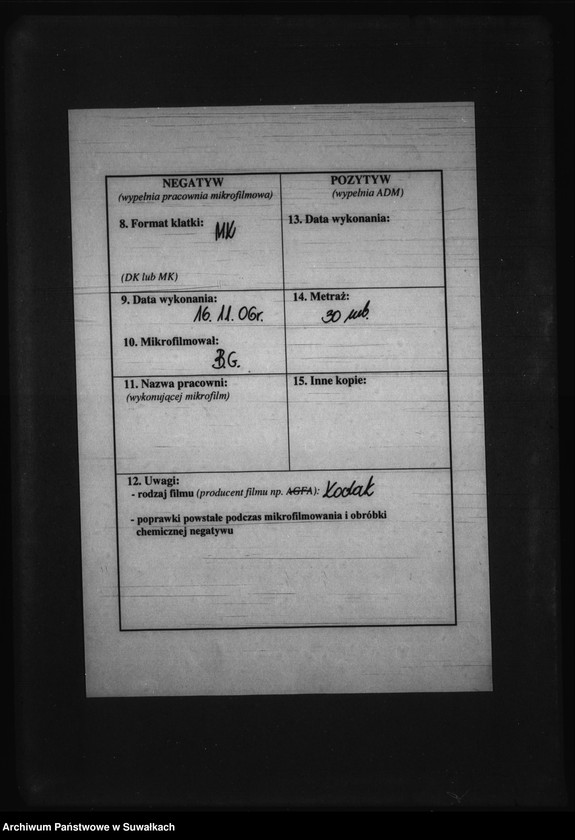 NEGATYW
(wypełnia pracownia mikrofilmowa)
8. Format klatki: MK
(DK lub MK)
9. Data wykonania:
16. 11. 06r.
10. Mikrofilmował:
B.G.
11. Nazwa pracowni:
(wykonującej mikrofilm)
POZYTYW
(wypełnia ADM)
13. Data wykonania:
14. Metraż:
30 mb.
15. Inne kopie:
12. Uwagi:
- rodzaj filmu (producent filmu np. AGFA): Kodak
- poprawki powstałe podczas mikrofilmowania i obróbki
chemicznej negatywu
Archiwum Państwowe w Suwałkach